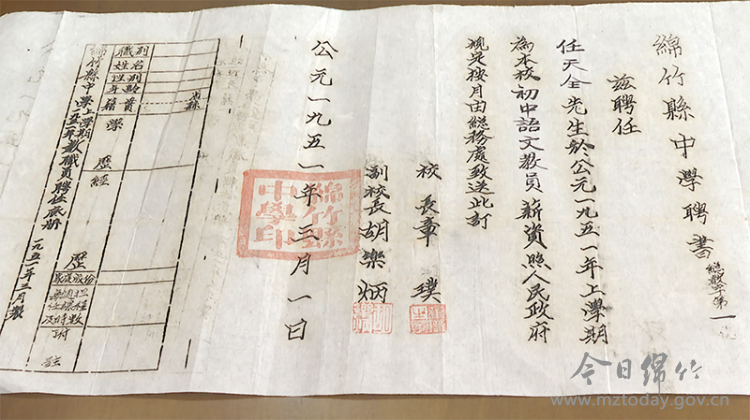 綿竹縣中學聘書
總教合第一
茲聘任
任天全先生於公元一九五一年上學期
為本校初中語文教員薪資照人民政府
規定按月由總務處致送此訂
校長章璞
副校長胡樂炳
公元一九五一年三月一日
綿竹縣中學印
職別
姓名
性別
年齡
籍貫
省
縣
學歷
經歷
附註
綿竹縣中學上學期一九五一年教職員聘任底冊
一九五一年三月製
今日绵竹
www.mztoday.gov.cn